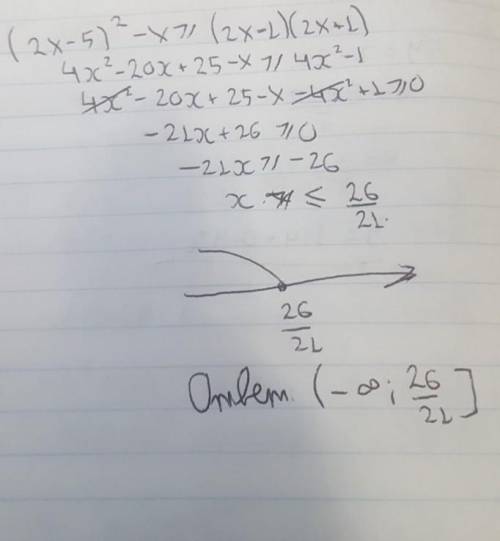 (2x-5)² - x ⩾ (2x-1)(2x+1)
4x² - 20x + 25 - x ⩾ 4x² - 1
4x² - 20x + 25 - x - 4x² + 1 ⩾ 0
-21x + 26 ⩾ 0
-21x ⩾ -26
x ≤ 26/21.
26/21
Ответ. (-∞; 26/21]